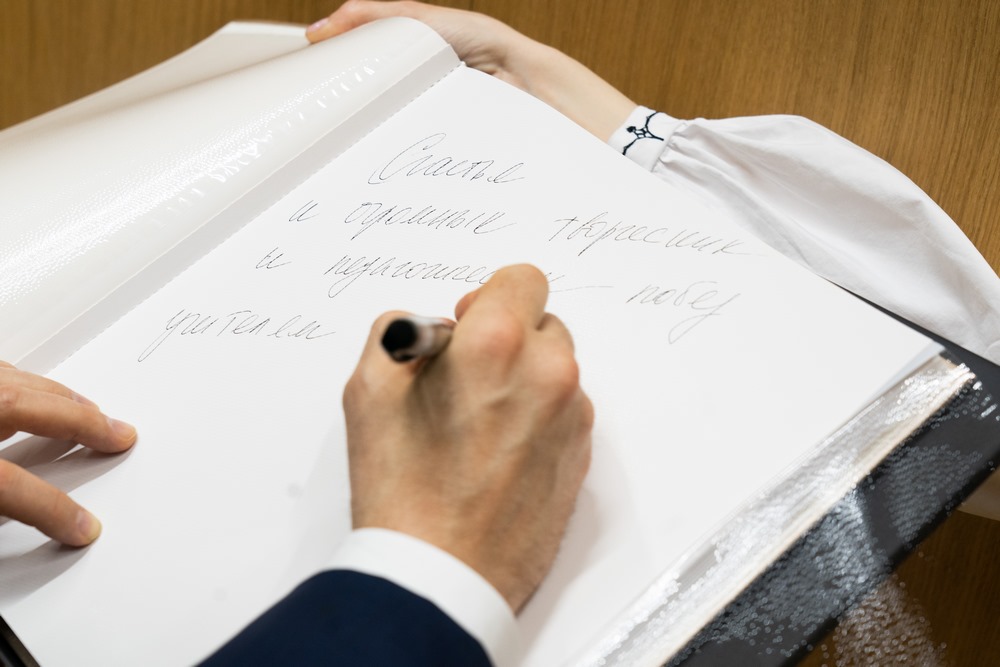 Счастья
и огромных творческих
и педагогических побед
учителям